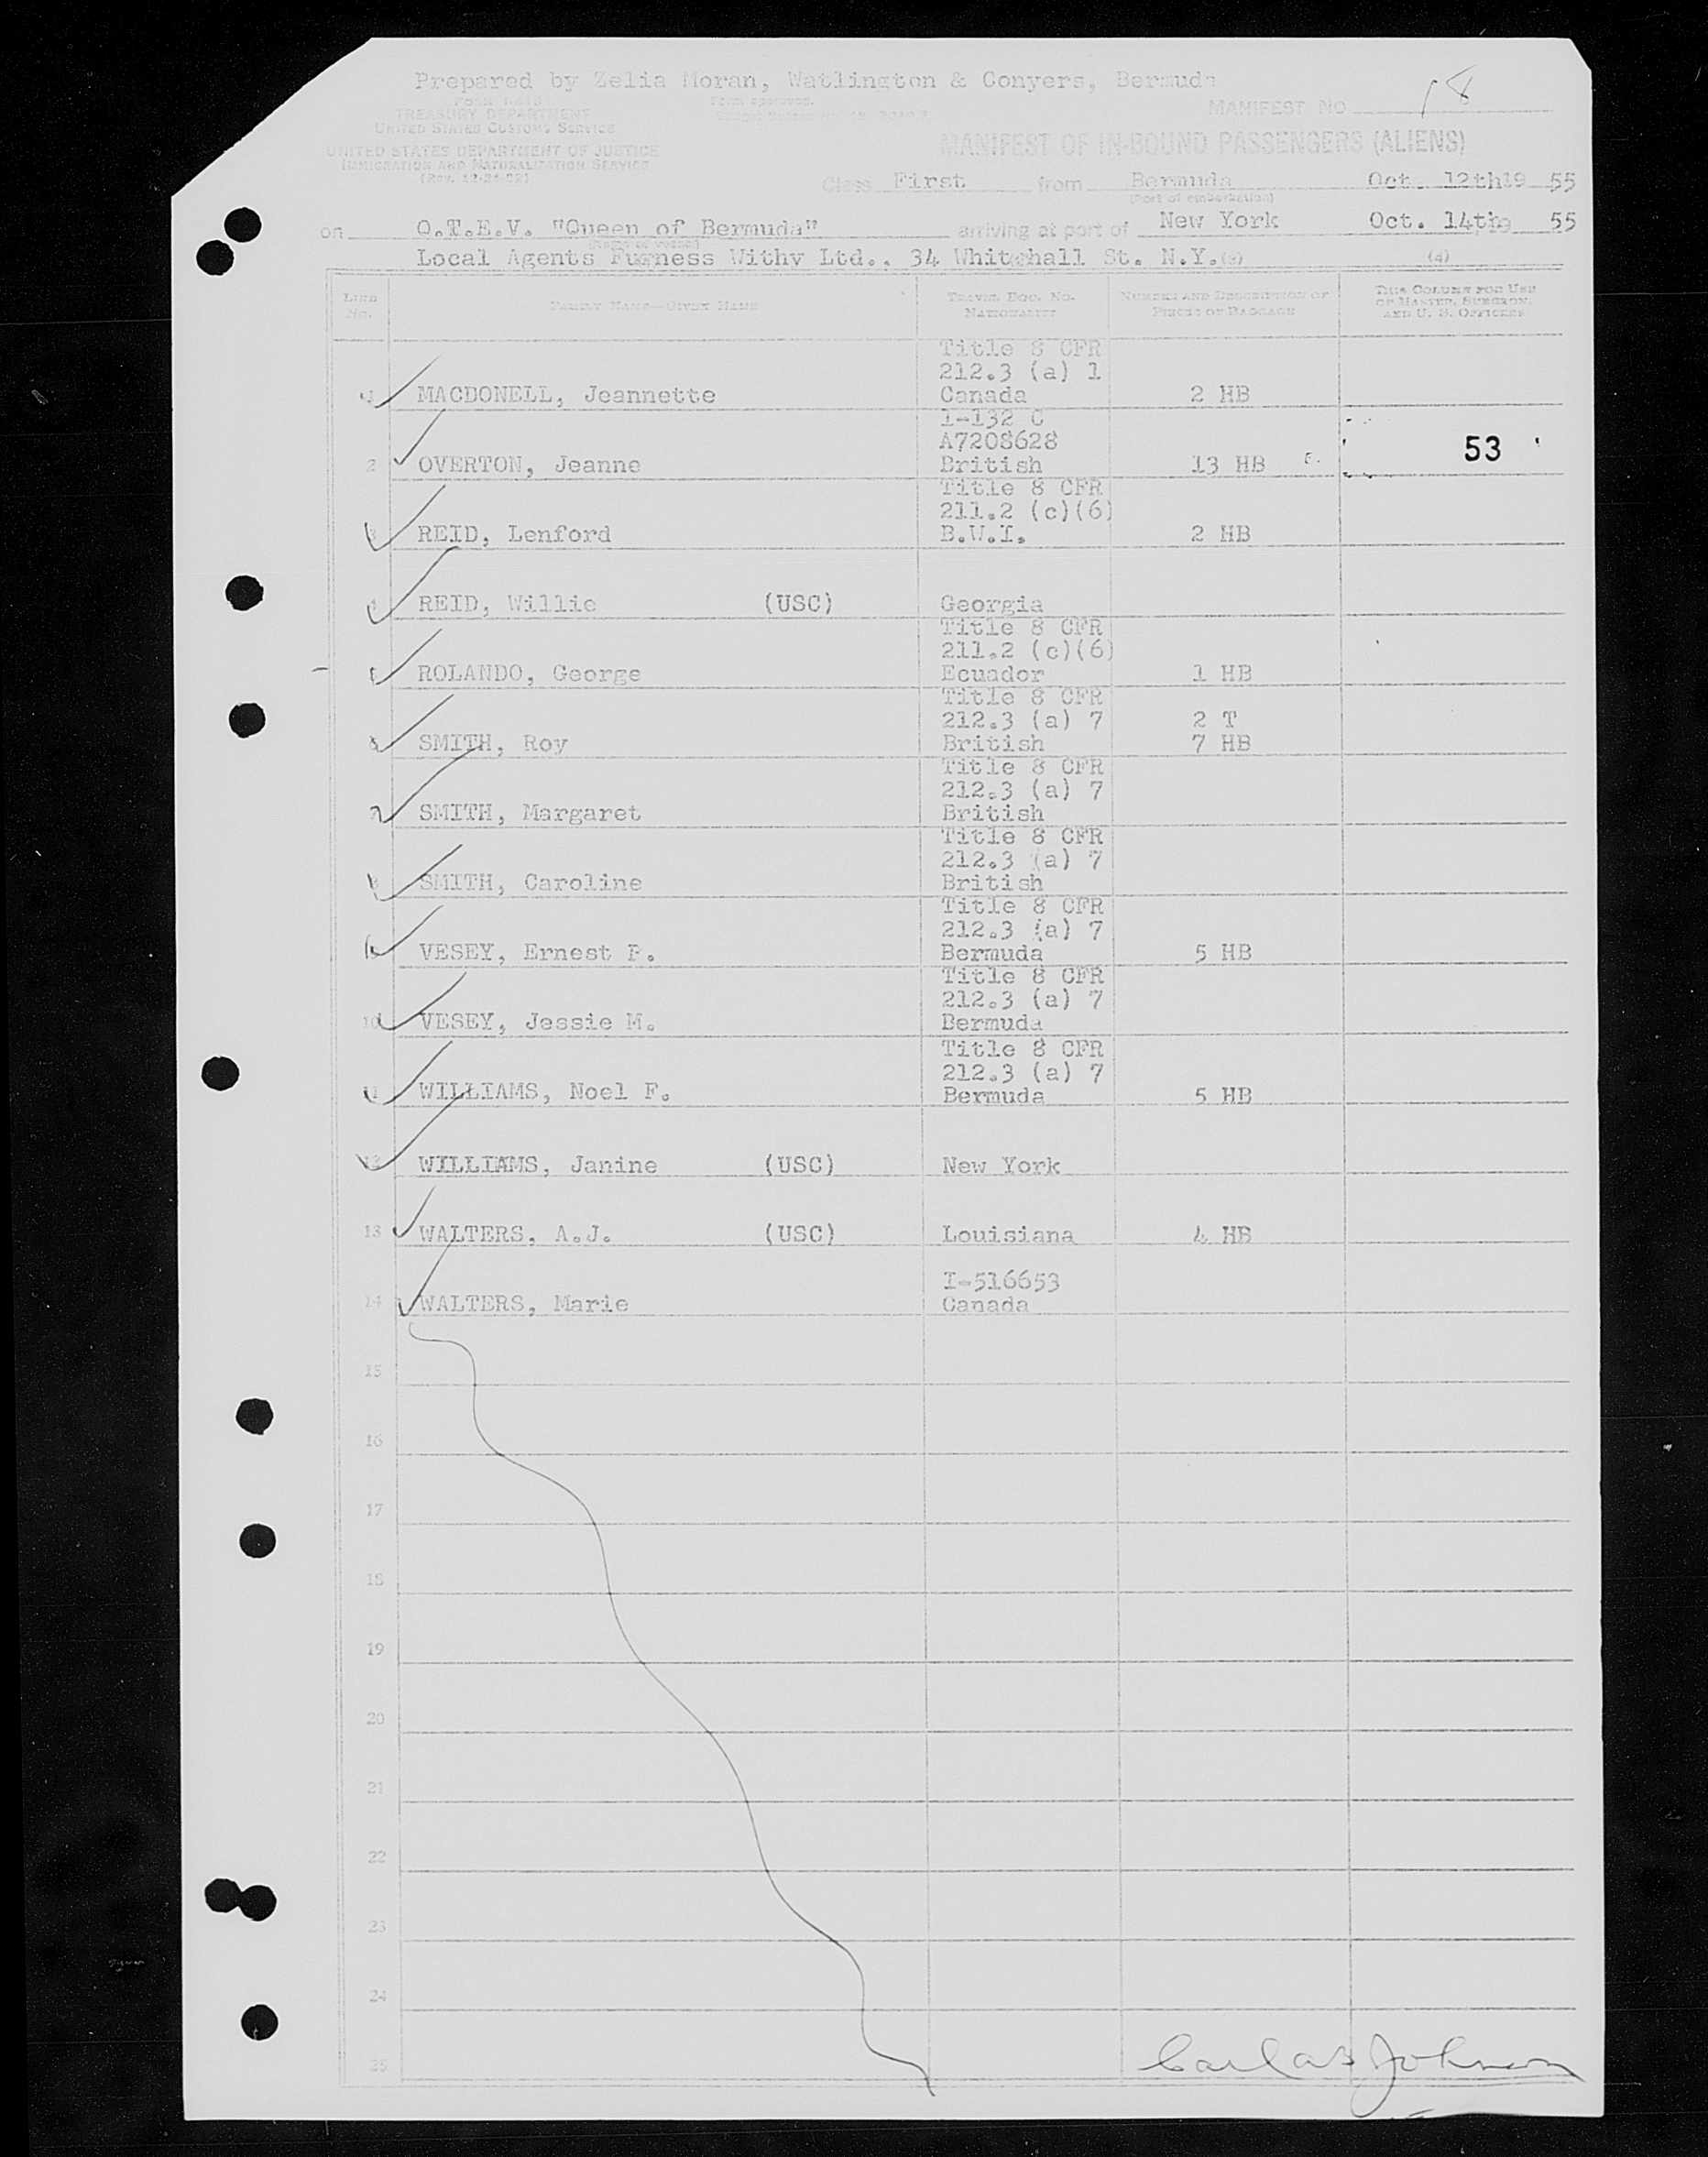 Prepared by Zelia Moran, Watlington & Conyers, Bermuda
TREASURY DEPARTMENT
UNITED STATES CUSTOMS SERVICE
Form approved.
MANIFEST NO. 18
UNITED STATES DEPARTMENT OF JUSTICE
IMMIGRATION AND NATURALIZATION SERVICE
MANIFEST OF IN-BOUND PASSENGERS (ALIENS)
Class First from Bermuda Oct. 12th 19 55
(Port of embarkation)
on Q.T.E.V. "Queen of Bermuda" arriving at port of New York Oct. 14th 19 55
(Name of vessel)
Local Agents Furness Withy Ltd., 34 Whitehall St. N.Y. (3) (4)
LINE No. FAMILY NAME—GIVEN NAME TRAVEL DOC. NO. NATIONALITY NUMBER AND DESCRIPTION OF PIECES OF BAGGAGE THIS COLUMN FOR USE OF MASTER, SURGEON, AND U. S. OFFICERS
Title 8 CFR
212.3 (a) 1
MACDONELL, Jeannette Canada 2 HB
I-132 C
A7208628 53
2 OVERTON, Jeanne British 13 HB
Title 8 CFR
211.2 (c)(6)
3 REID, Lenford B.W.I. 2 HB
4 REID, Willie (USC) Georgia
Title 8 CFR
211.2 (c)(6)
ROLANDO, George Ecuador 1 HB
Title 8 CFR
212.3 (a) 7 2 T
SMITH, Roy British 7 HB
Title 8 CFR
212.3 (a) 7
7 SMITH, Margaret British
Title 8 CFR
212.3 (a) 7
SMITH, Caroline British
Title 8 CFR
212.3 (a) 7
VESEY, Ernest P. Bermuda 5 HB
Title 8 CFR
212.3 (a) 7
10 VESEY, Jessie M. Bermuda
Title 8 CFR
212.3 (a) 7
11 WILLIAMS, Noel F. Bermuda 5 HB
12 WILLIAMS, Janine (USC) New York
13 WALTERS, A.J. (USC) Louisiana 4 HB
I-516653
14 WALTERS, Marie Canada
15
16
17
18
19
20
21
22
23
24
25